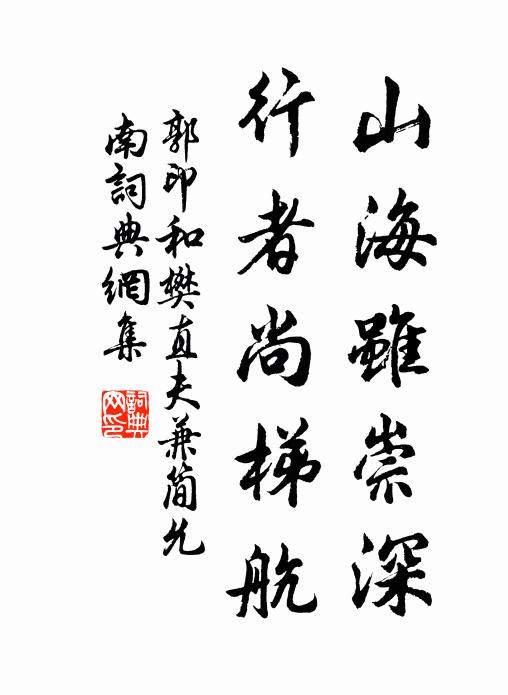 山海雖崇深
行者尚梯航
郭印和樊直夫兼簡允
南詞典網集
詞典网印